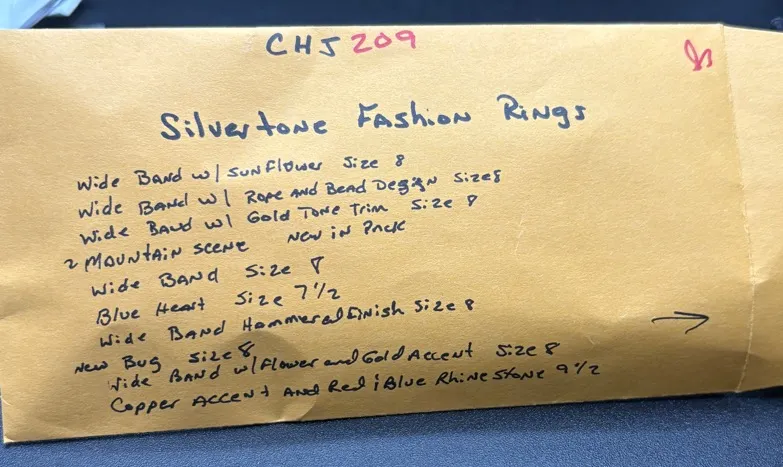 CHJ 209
Silvertone Fashion Rings
Wide Band w/ Sunflower Size 8
Wide Band w/ Rope and Bead Design Size 8
Wide Band w/ Gold Tone Trim Size 8
2 Mountain Scene New in Pack
Wide Band Size 8
Blue Heart Size 7 1/2
Wide Band Hammered Finish Size 8
New Bug Size 8
Wide Band w/ Flower and Gold Accent Size 8
Copper Accent and Red & Blue Rhinestone 9 1/2